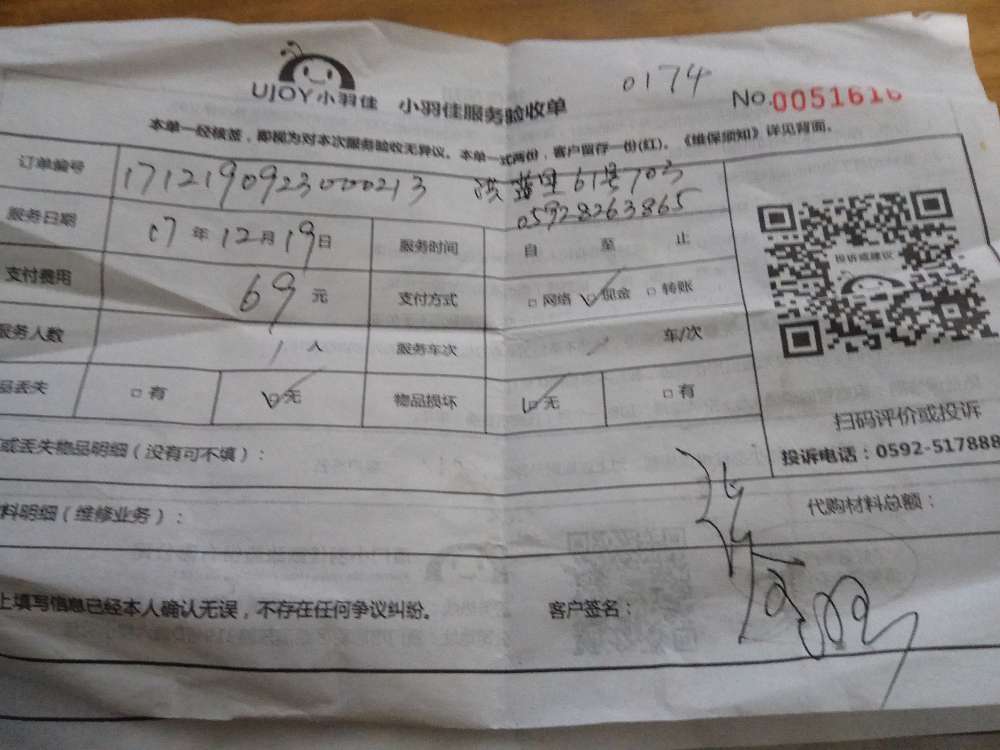 UJOY小羽佳 小羽佳服务验收单 0174 No.0051616
本单一经核签，即视为对本次服务验收无异议。本单一式两份，客户留存一份(红)。《维保须知》详见背面。
订单编号 1712190923000213 洪蓝里61号703
05928263865
服务日期 17年12月19日 服务时间 自 至 止
支付费用 69元 支付方式 □网络 □现金 □转账
服务人数 1人 服务车次 车/次
品丢失 □有 □无 物品损坏 □无 □有
或丢失物品明细（没有可不填）：
料明细（维修业务）： 代购材料总额：
上填写信息已经本人确认无误，不存在任何争议纠纷。 客户签名：
投诉或建议
扫码评价或投诉
投诉电话：0592-517888